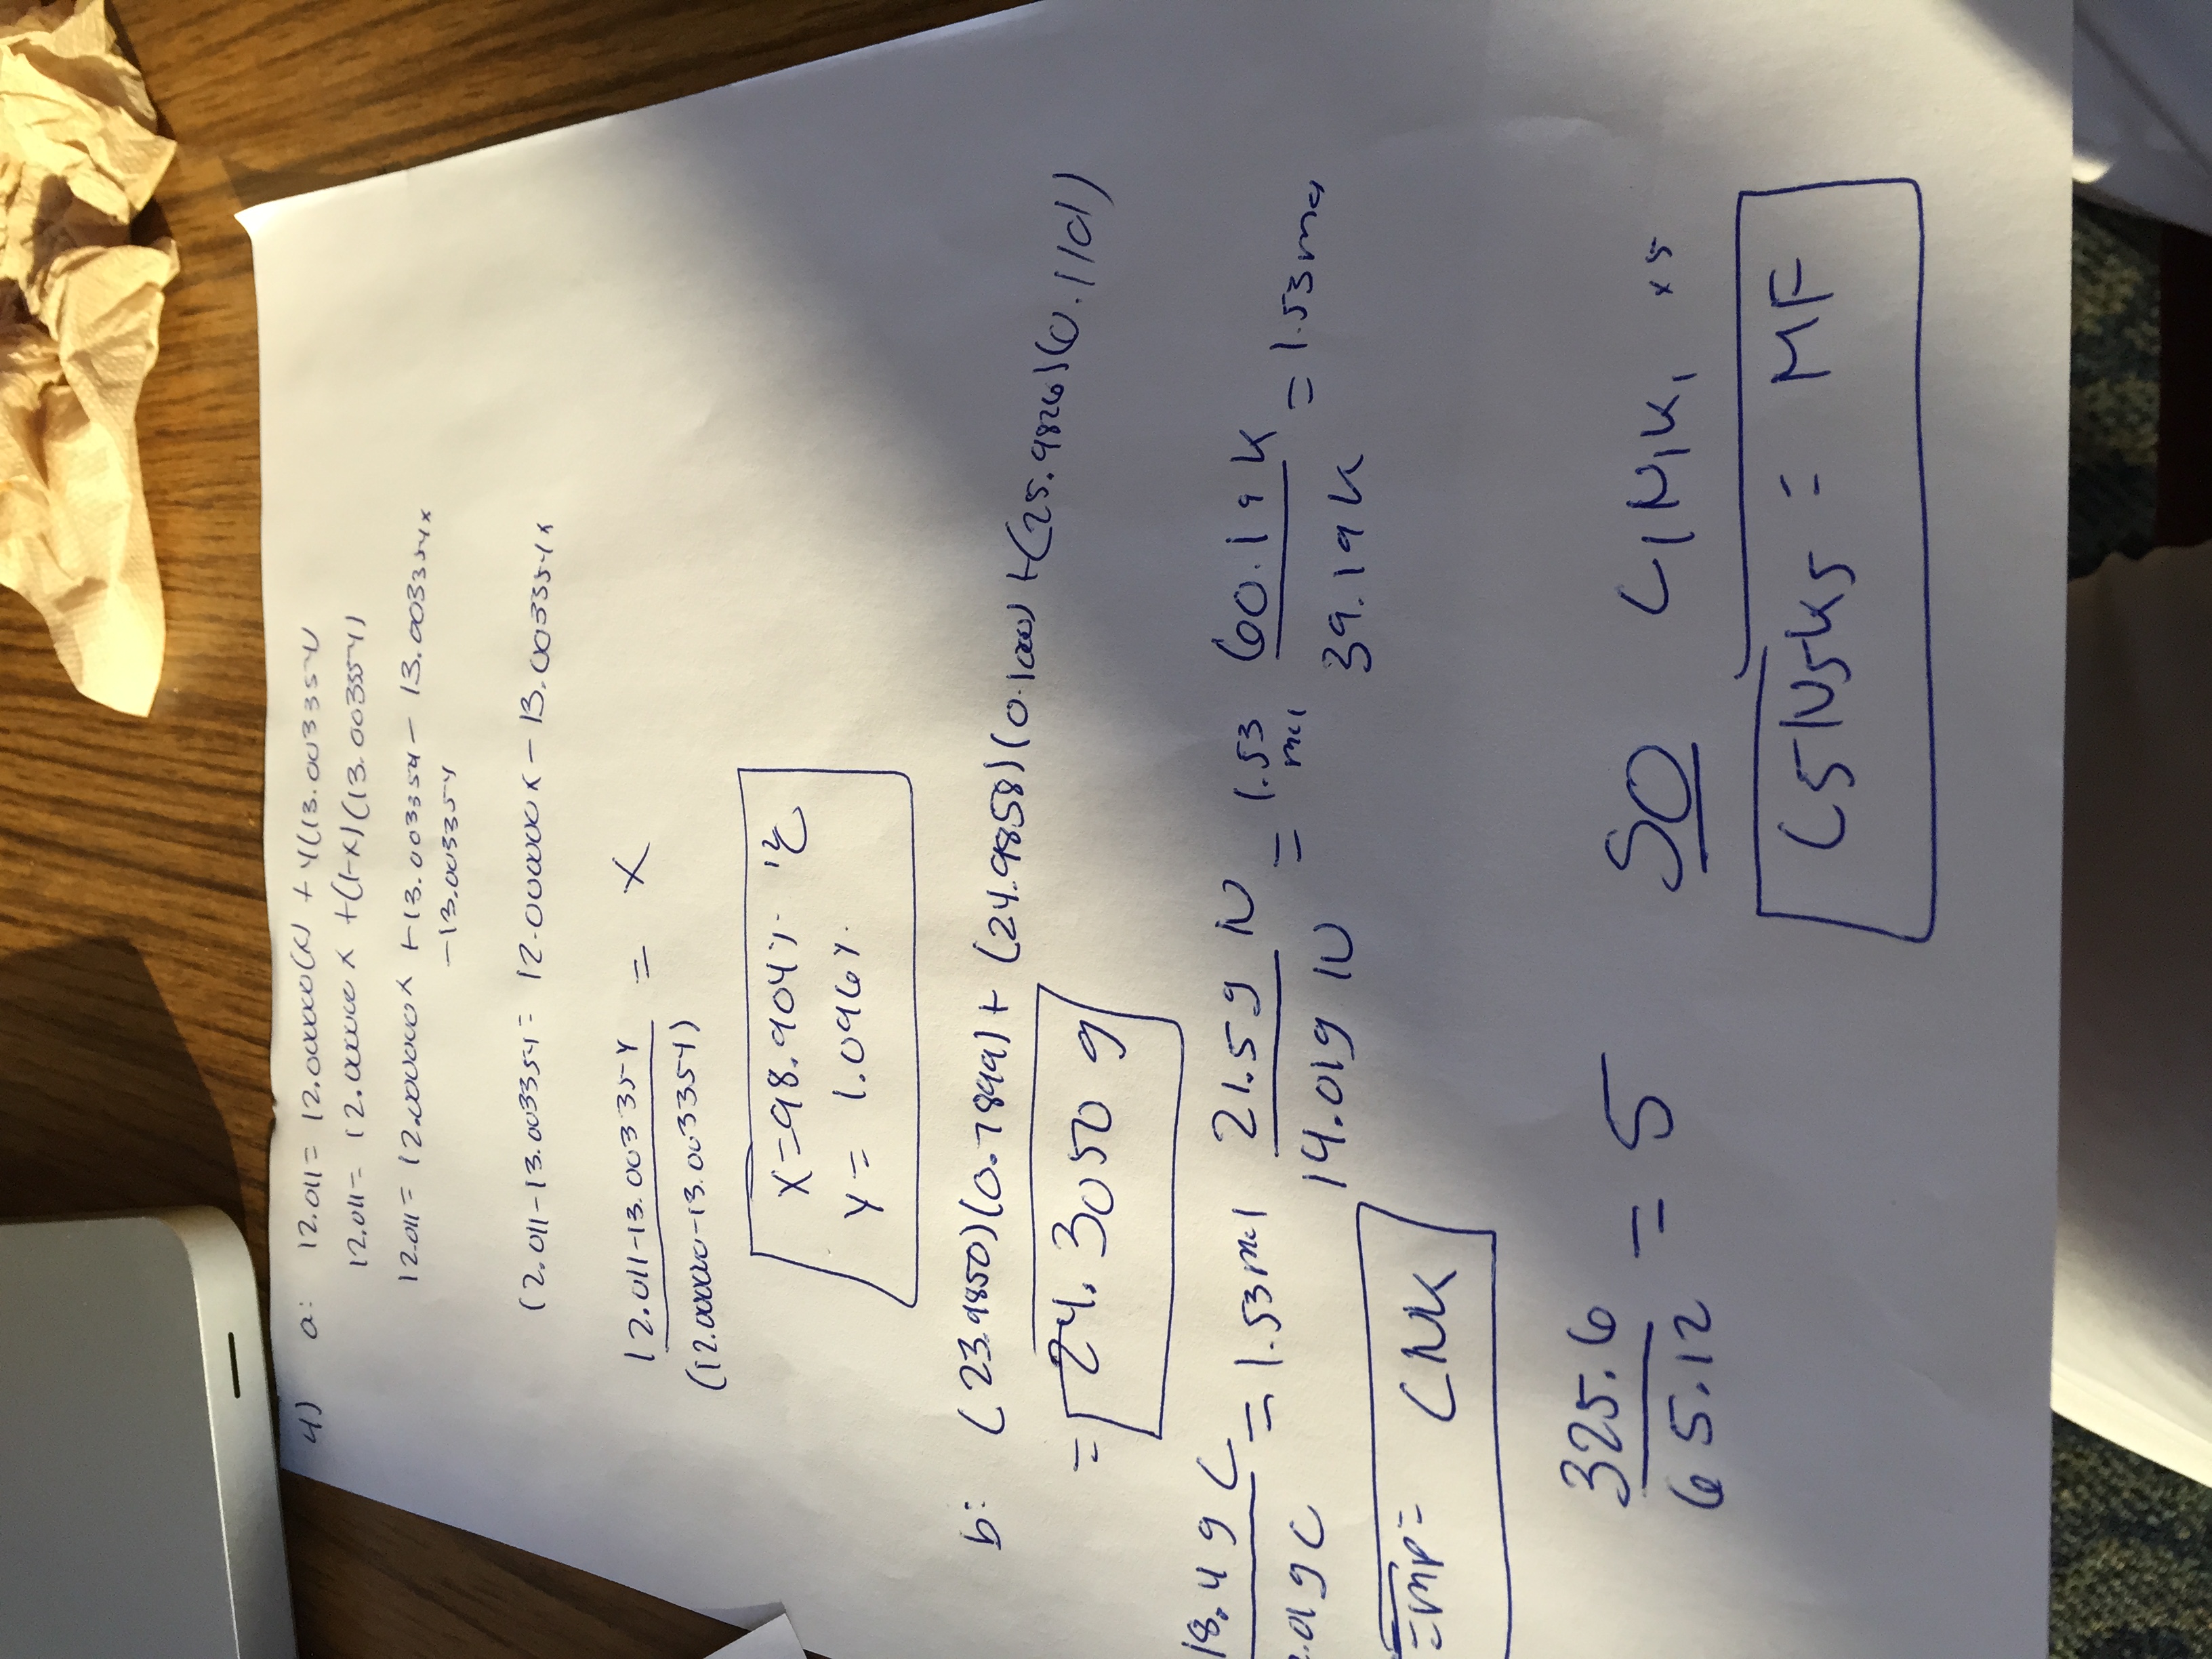 4) a: 12.011 = 12.00000(x) + y(13.003354)
12.011 = 12.00000 x + (1-x)(13.003354)
12.011 = 12.000000x + 13.003354 - 13.003354x
-13.003354
12.011-13.003354 = 12.000000x - 13.003354x
12.011-13.003354 = x
(12.00000-13.003354)
x=98.904%
y = 1.096%
b: (23.9850)(0.7899) + (24.9858)(0.1000) + (25.9826)(0.1101)
= 24.3050 g
18.4 g C = 1.53 mol 21.5 g N = 1.53 mol 60.1 g K = 1.53 mol
.01 g C 14.01g N 39.1 g K
Emp = CNK
325.6 = 5 SO C1N1K1 x5
65.12
C5N5K5 = MF